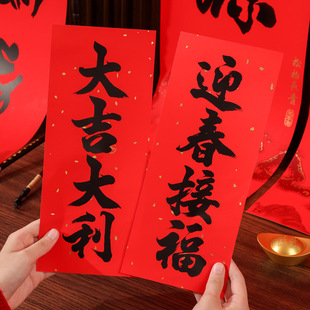 大吉大利
迎春接福